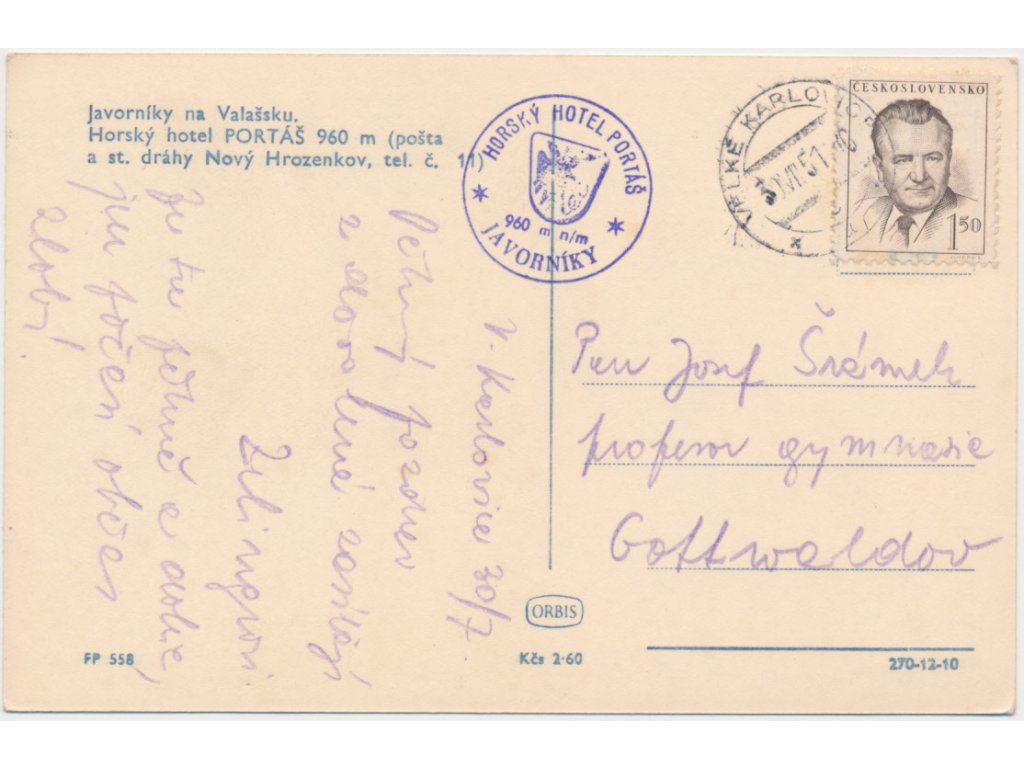 Javorníky na Valašsku.
Horský hotel PORTÁŠ 960 m (pošta
a st. dráhy Nový Hrozenkov, tel. č. 11)
HORSKÝ HOTEL PORTÁŠ
960 m n/m
JAVORNÍKY
VELKÉ KARLOVICE
ČESKOSLOVENSKO
1.50
V. Karlovice 30/7
Pěkný pozdrav
z dovolené zasílají
Je tu pěkně a
jen počasí občas
zlobí!
Pan Josef Šrámek
profesor gymnasia
Gottwaldov
ORBIS
FP 558
Kčs 2·60
270-12-10